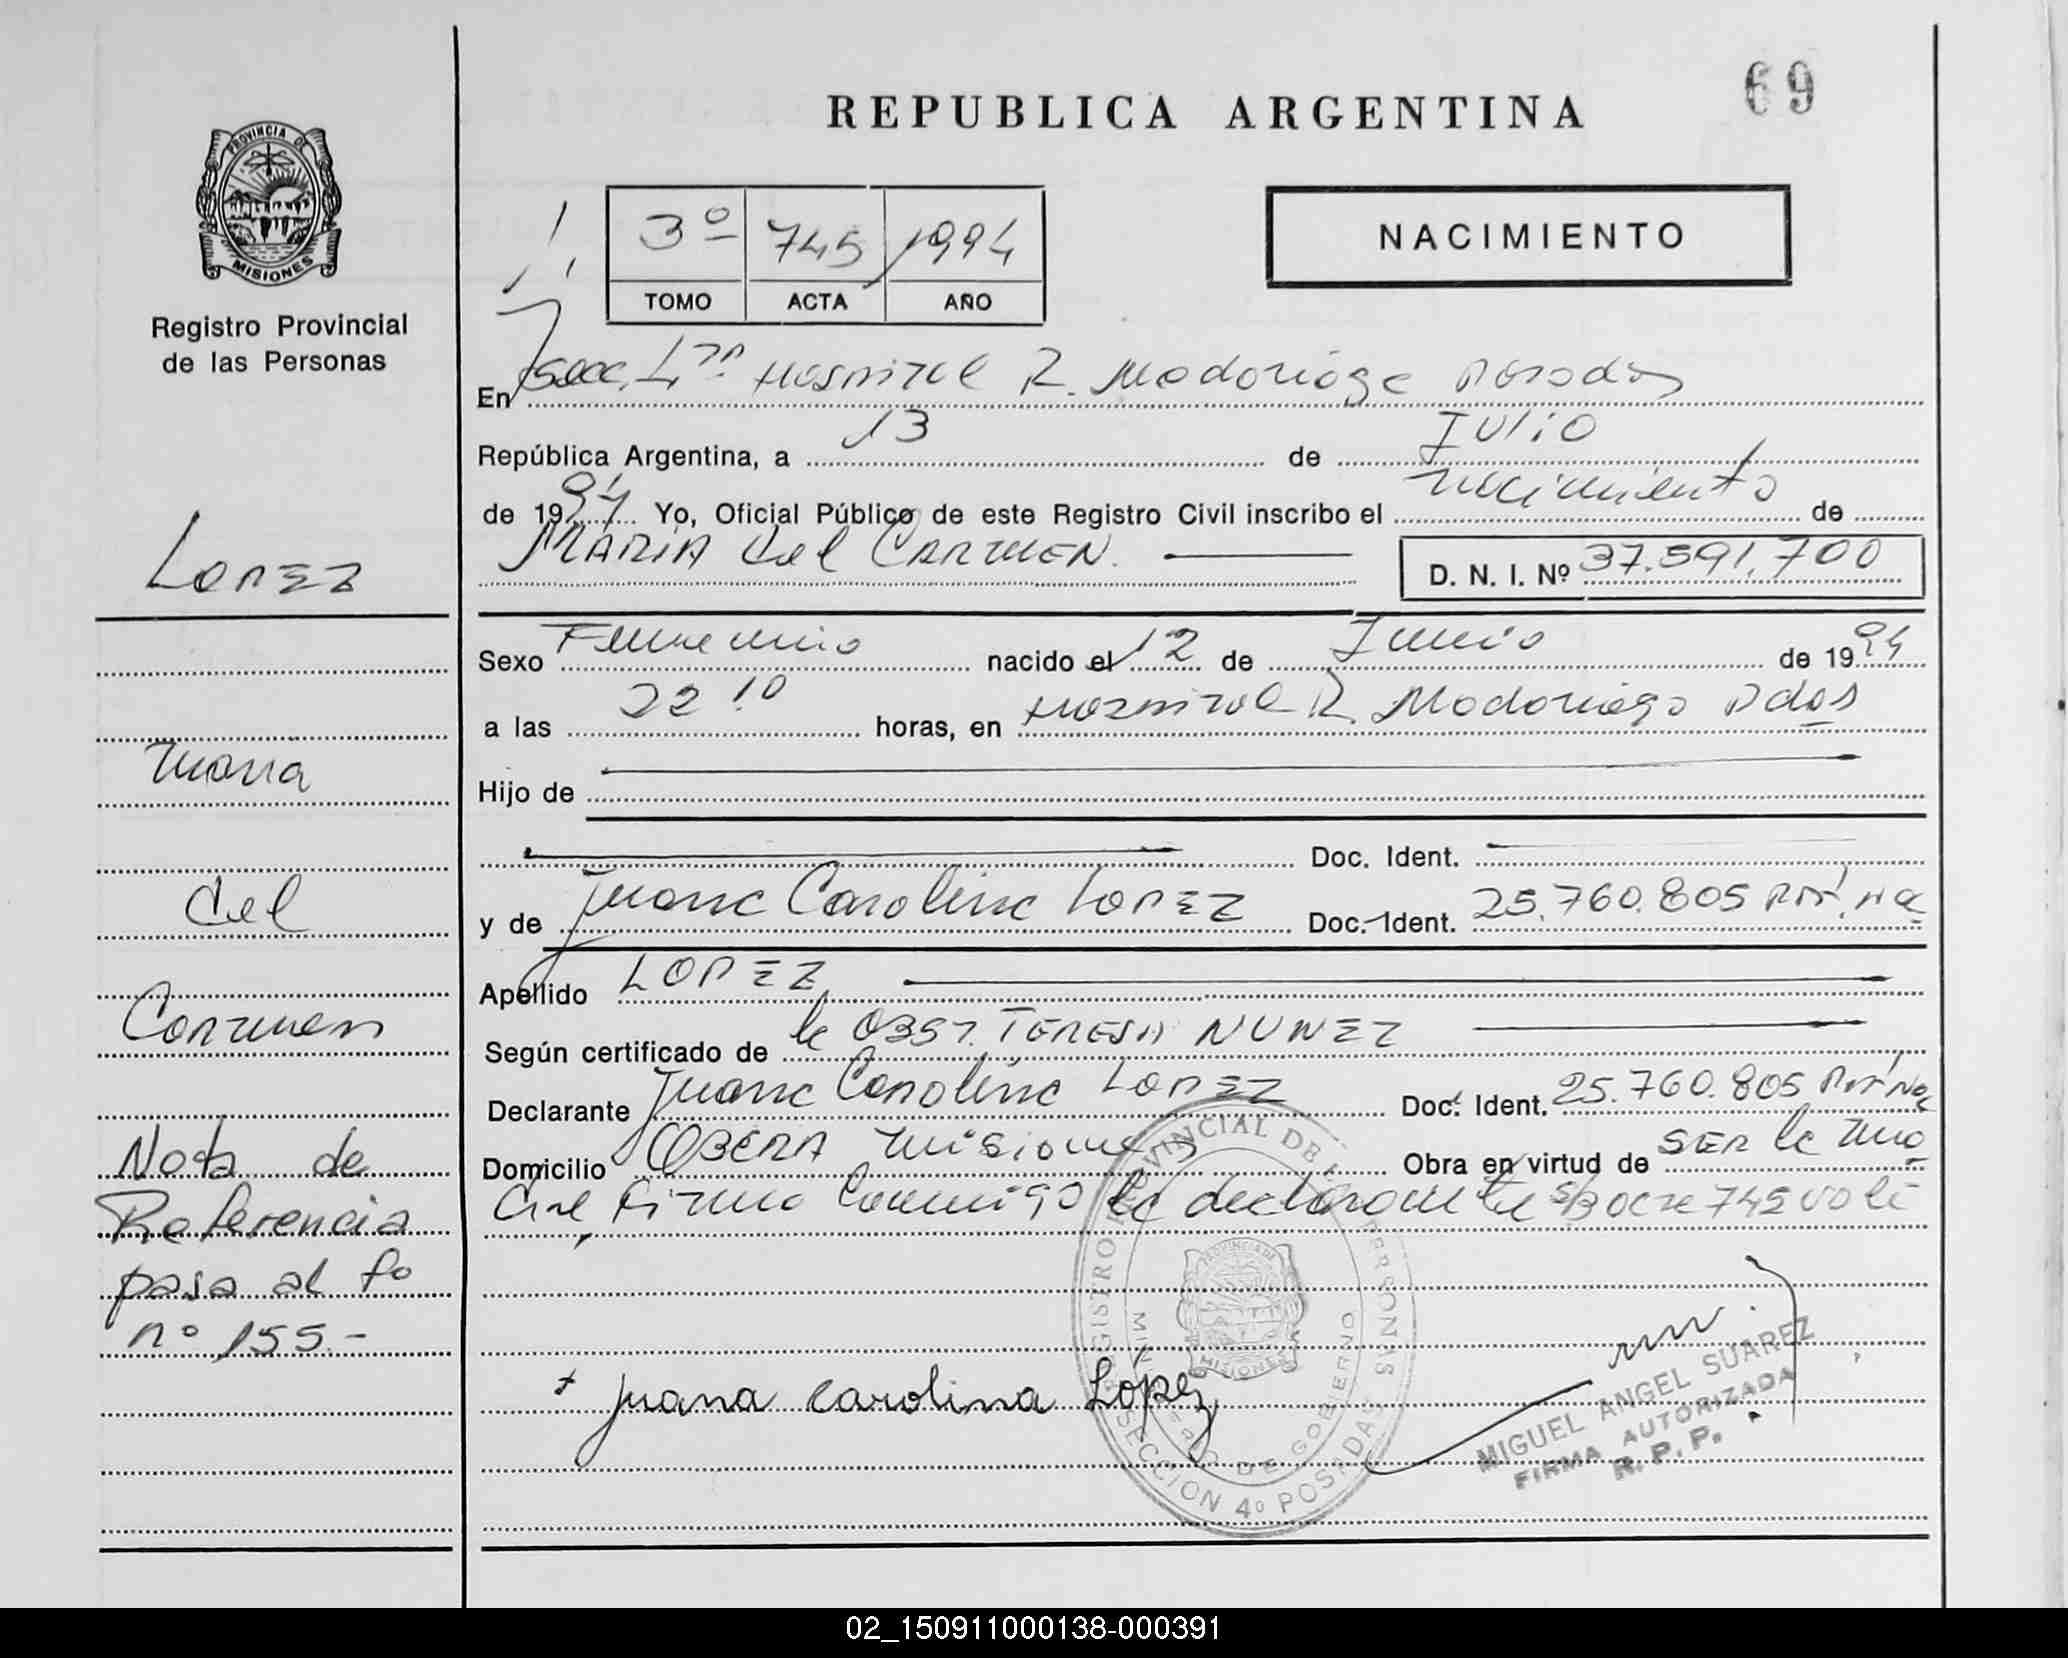 69
REPUBLICA ARGENTINA
PROVINCIA DE
MISIONES
Registro Provincial
de las Personas
3º 745 1994
TOMO ACTA AÑO
NACIMIENTO
En Secc. 4ta Hospital R. Madariaga Posadas
República Argentina, a 13 de Julio
de 1994 Yo, Oficial Público de este Registro Civil inscribo el nacimiento de
MARIA del CARMEN.
D. N. I. Nº 37.591.700
Sexo Femenino nacido el 12 de Junio de 1994
a las 22:10 horas, en Hospital R. Madariaga Pdas
Hijo de
Doc. Ident.
y de Juana Carolina LOPEZ Doc. Ident. 25.760.805
Apellido LOPEZ
Según certificado de la OBST. TERESA NUNEZ
Declarante Juana Carolina LOPEZ Doc. Ident. 25.760.805
Domicilio OBERA Misiones Obra en virtud de SER la
firma conmigo la declarante 745 vale
LOPEZ
Maria
del
Carmen
Nota de
Referencia
pasa al fº
nº 155.-
Juana Carolina López
REGISTRO PROVINCIAL DE LAS PERSONAS
SECCION 4º POSADAS
DE GOBIERNO
PROVINCIA DE
MISIONES
MIGUEL ANGEL SUAREZ
FIRMA AUTORIZADA
R. P. P.
02_150911000138-000391